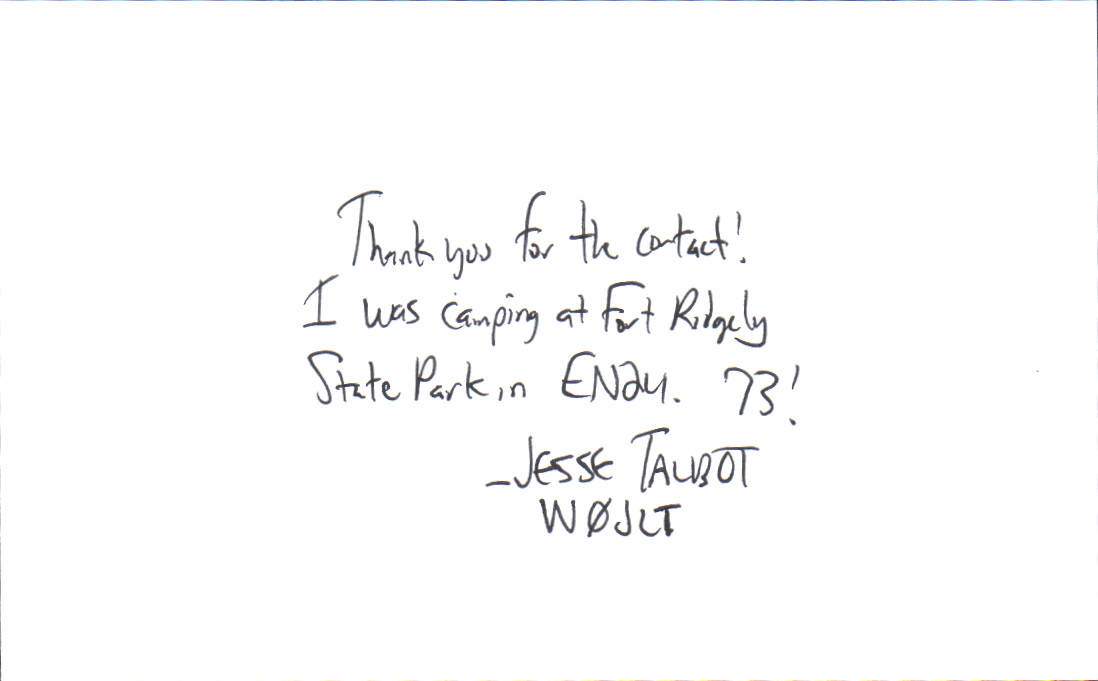 Thank you for the contact!
I was camping at Fort Ridgely
State Park in EN24. 73!
- JESSE TALBOT
WØJLT